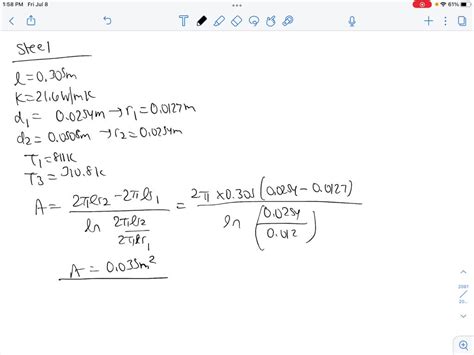 1:58 PM Fri Jul 8
61%
Steel
l = 0.305m
K = 21.6 W/mK
d1 = 0.0254m → r1 = 0.0127m
d2 = 0.0508m → r2 = 0.0254m
T1 = 811K
T3 = 310.8K
A = (2πlr2 - 2πlr1) / (ln 2πlr2/2πlr1) = 2π × 0.305 (0.0254 - 0.0127) / ln (0.0254/0.012)
A = 0.035m²